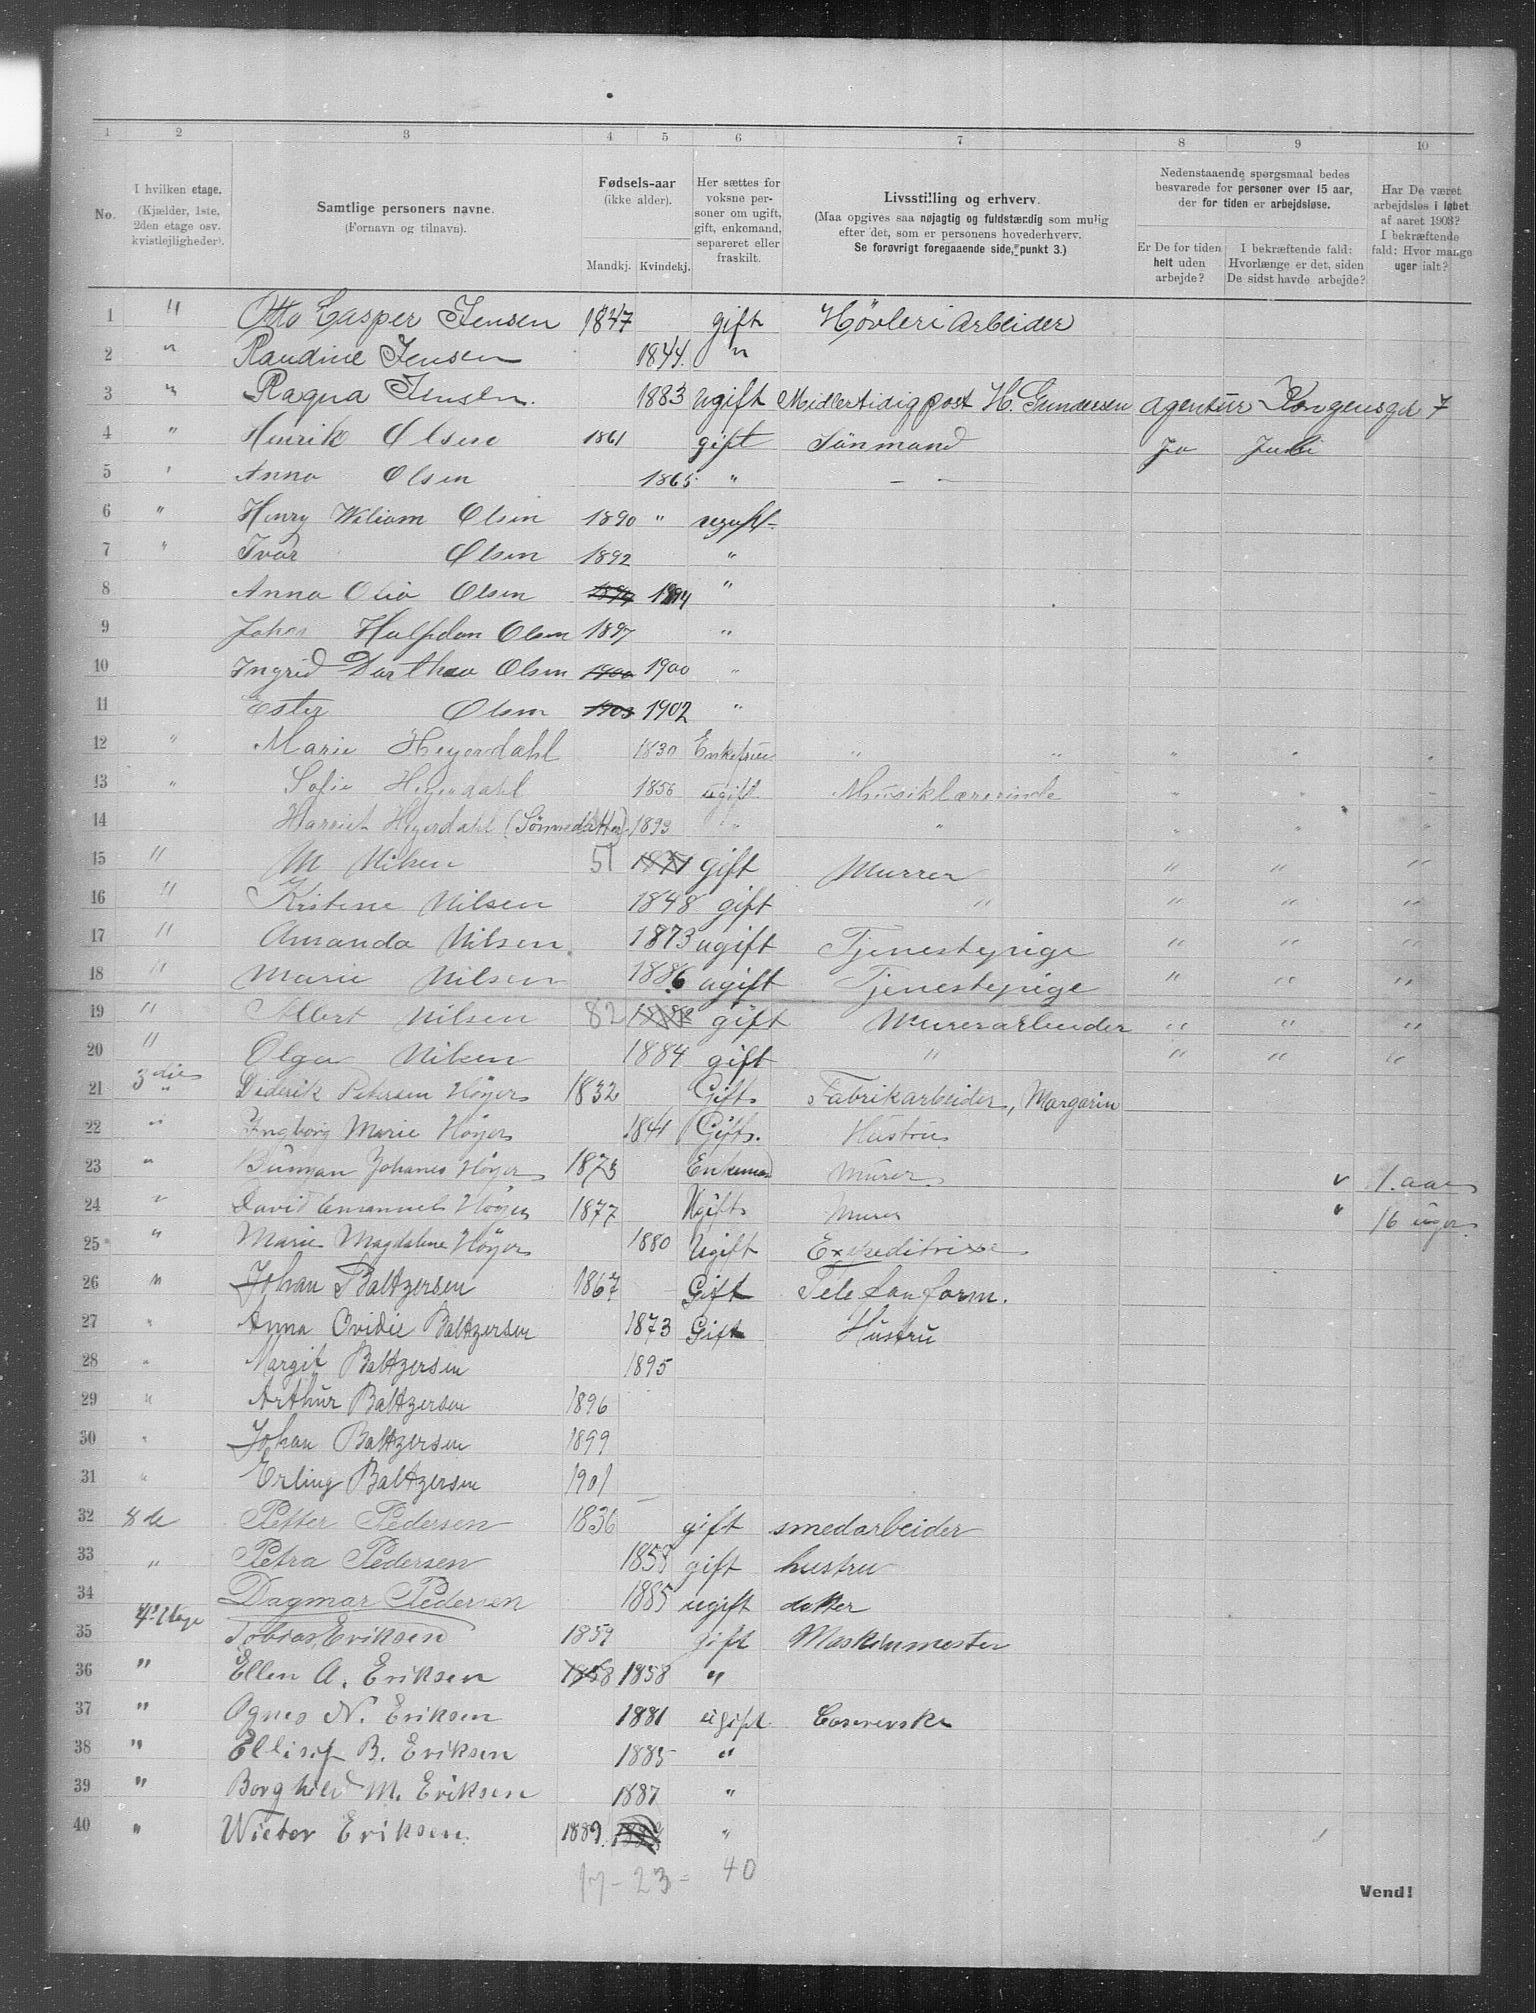 1 2 3 4 5 6 7 8 9 10
No.
I hvilken etage.
(Kjælder, 1ste, 2den etage osv. kvistlejligheder).
Samtlige personers navne.
(Fornavn og tilnavn).
Fødsels-aar
(ikke alder).
Mandkj. Kvindekj.
Her sættes for voksne personer om ugift, gift, enkemand, separeret eller fraskilt.
Livsstilling og erhverv.
(Maa opgives saa nøjagtig og fuldstærdig som mulig efter det, som er personens hovederhverv.
Se forøvrigt foregaaende side, punkt 3.)
Nedenstaaende spørgsmaal bedes besvarede for personer over 15 aar, der for tiden er arbejdsløse.
Er De for tiden helt uden arbejde?
I bekræftende fald: Hvorlænge er det, siden De sidst havde arbejde?
Har De været arbejdsløs i løbet af aaret 1903? I bekræftende fald: Hvor mange uger ialt?
1 " Otto Casper Jensen 1847 gift Hövleri Arbeider
2 " Randine Jensen 1844 "
3 " Ragna Jensen. 1883 ugift Midlertidig post H. Gundersen Agentur Kongensgd 7
4 " Henrik Olsen 1861 gift Ja Juli
5 " Anna Olsen 1865 " — -
6 " Henry Wiliam Olsen 1890 " ugift
7 " Ivar Olsen 1892 "
8 Anna Olia Olsen 1894 1894 "
9 Johan Halfdan Olsen 1897 "
10 Ingrid Darthea Olsen 1900 1900 "
11 Ester Olsen 1903 1902 "
12 " Marie Heyerdahl 1830 Enkefrue " " " " "
13 " Sofie Heyerdahl 1856 ugift Musiklærerinde " " "
14 Harriet Heyerdahl (Sönnedatter) 1893 " " " " "
15 " M Nilsen 51 gift Murrer " " "
16 " Kristine Nilsen 1848 gift " " " "
17 " Amanda Nilsen. 1873 ugift Tjenestepige " " "
18 " Marie Nilsen 1886 ugift Tjenestepige " " "
19 " Albert Nilsen 82 gift Murerarbeider " " "
20 " Olga Nilsen 1884 gift " " " "
21 3die " Diderik Petersen Höyer 1832 Gift Fabrikarbeider, Margarin
22 " Ingborg Marie Höyer 1841 Gift. Hustru
23 " Johanes Höyer 1873 Enkemand Murer. v 1. aar
24 " David Emanuel Höyer 1877 Ugift Murer " 16 uger
25 " Marie Magdalene Höyer 1880 Ugift Expeditrise
26 " Johan Baltzersen 1867 Gift Telefonform.
27 " Anna Ovidie Baltzersen 1873 Gift Hustru
28 " Margit Baltzersen 1895
29 " Arthur Baltzersen 1896
30 " Johan Baltzersen 1899
31 " Erling Baltzersen 1901
32 Petter Pedersen 1836 gift smedarbeider
33 " Petra Pedersen 1858 gift hustru
34 Dagmar Pedersen 1885 ugift datter
35 4de Etage Tobias Eriksen 1859 gift Maskinmester
36 " Ellen A. Eriksen 1858 1858 "
37 " Agnes N. Eriksen 1881 ugift
38 " Ellisif B. Eriksen 1885 "
39 " Borghild M. Eriksen 1887 "
40 " Wictor Eriksen. 1889. "
17 - 23 = 40
Vend!